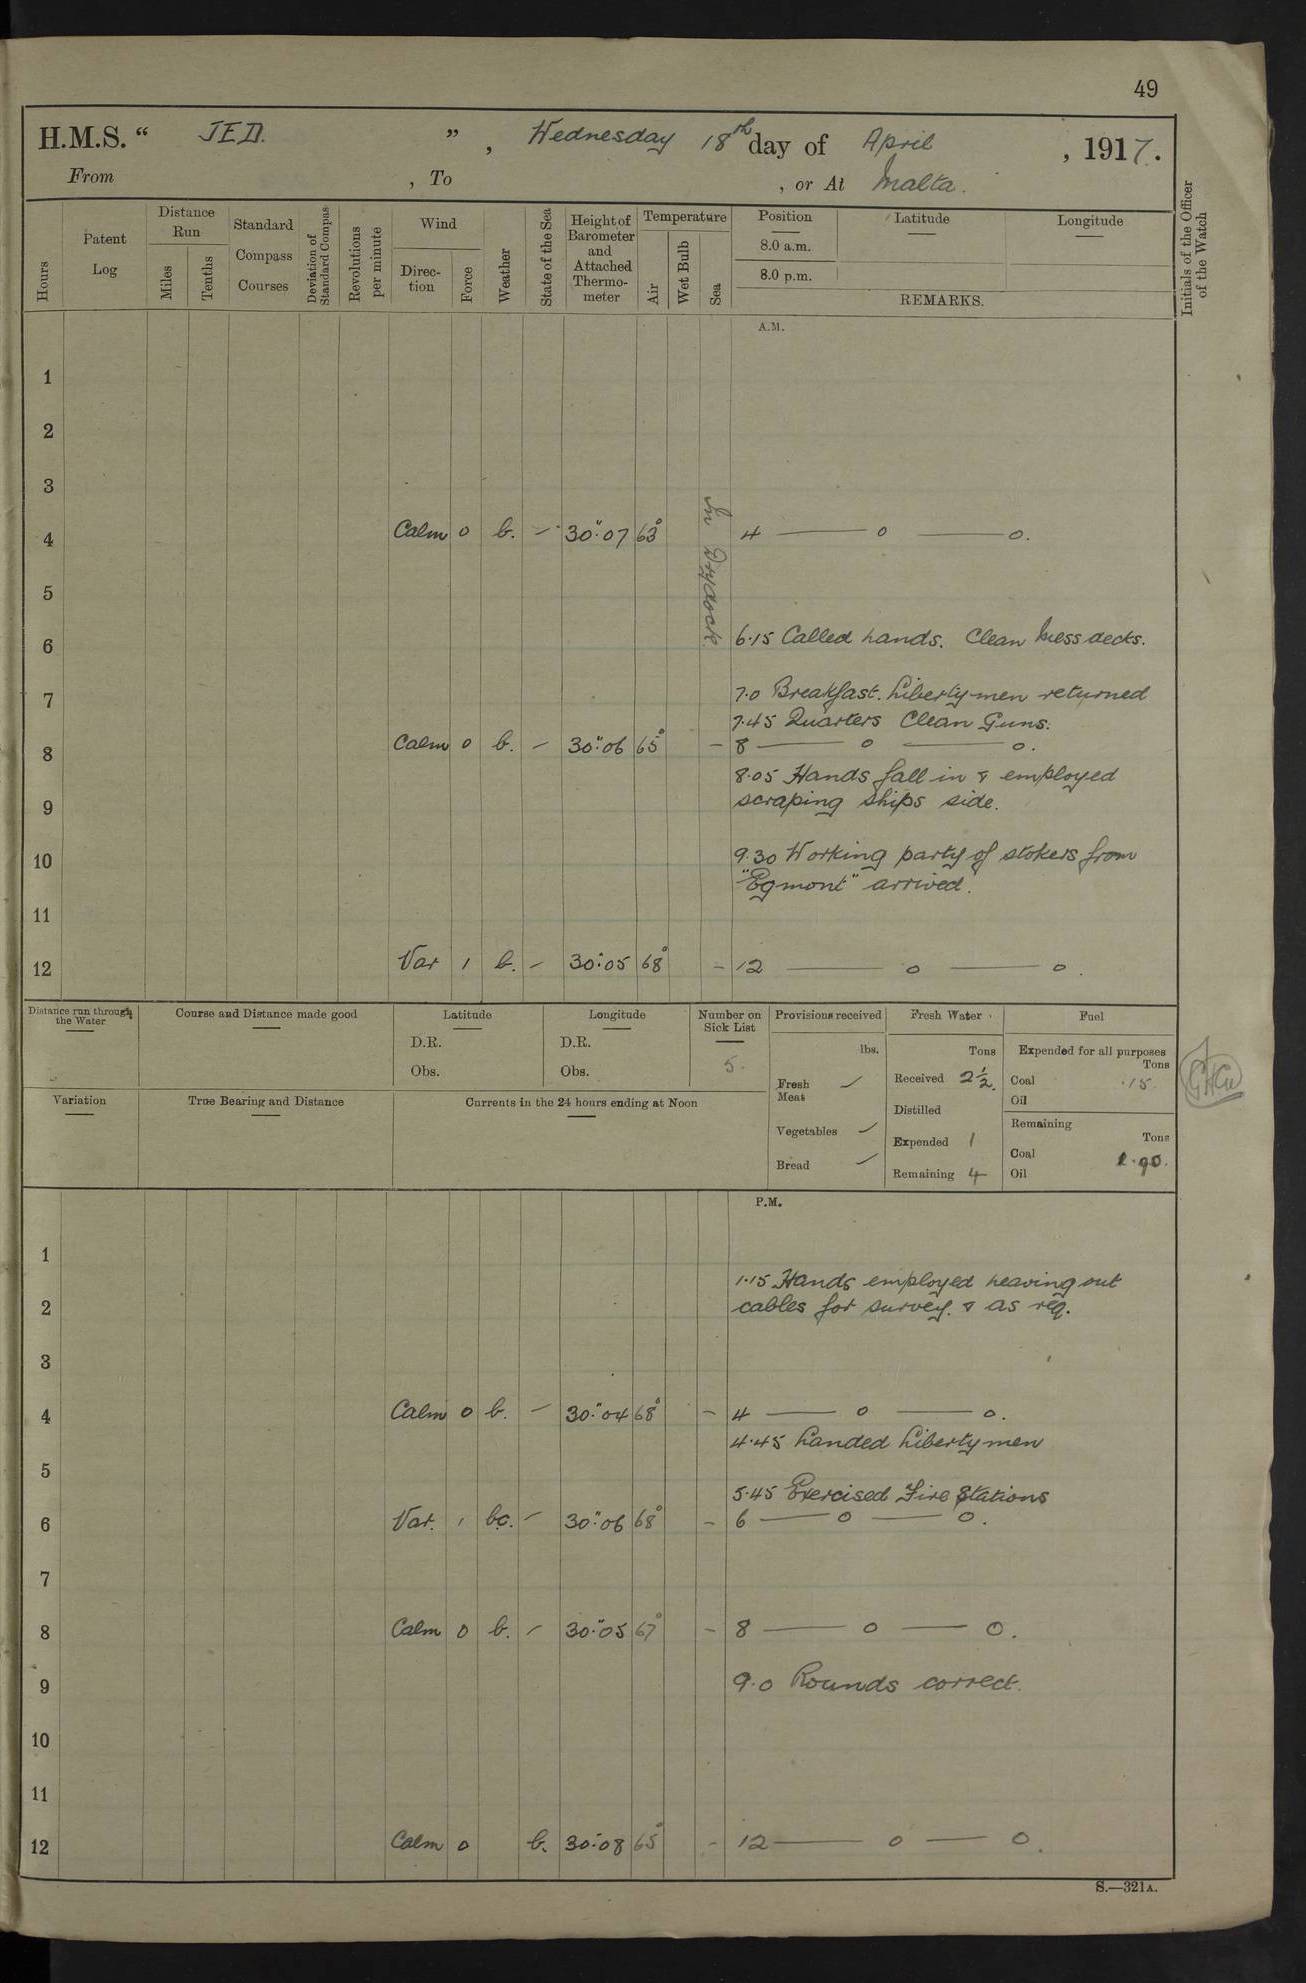 49
H.M.S. “ JED. ” , Wednesday 18th day of April , 1917.
From , To , or At Malta.
Hours
Patent Log
Distance Run
Miles
Tenths
Standard Compass Courses
Deviation of Standard Compass
Revolutions per minute
Wind
Direction
Force
Weather
State of the Sea
Height of Barometer and Attached Thermometer
Temperature
Air
Wet Bulb
Sea
Position Latitude Longitude
8.0 a.m.
8.0 p.m.
REMARKS.
Initials of the Officer of the Watch
A.M.
1
2
3
In Drydock
4 Calm 0 b. - 30".07 63° 4 — o — o.
5
6 6.15 Called hands. Clean mess decks.
7 7.0 Breakfast. Liberty men returned
7.45 Quarters Clean Guns.
8 Calm 0 b. - 30".06 65° - 8 — o — o.
8.05 Hands fall in & employed
9 scraping ships side.
10 9.30 Working party of stokers from
"Egmont" arrived.
11
12 Var 1 b. - 30".05 68° - 12 — o — o.
Distance run through the Water
Course and Distance made good
Latitude
D.R.
Obs.
Longitude
D.R.
Obs.
Number on Sick List
5.
Provisions received
lbs.
Fresh Meat ✓
Vegetables ✓
Bread ✓
Fresh Water
Tons
Received 2½.
Distilled
Expended 1
Remaining 4
Fuel
Expended for all purposes
Tons
Coal .15.
Oil
Remaining
Tons
Coal 1.90.
Oil
Variation
True Bearing and Distance
Currents in the 24 hours ending at Noon
P.M.
1
1.15 Hands employed heaving out
2 cables for survey. & as req.
3
4 Calm 0 b. - 30".04 68° - 4 — o — o.
4.45 Landed Liberty men
5
5.45 Exercised Fire Stations
6 Var. 1 bc. - 30".06 68° - 6 — o — o.
7
8 Calm 0 b. - 30".05 67° - 8 — o — o.
9 9.0 Rounds correct.
10
11
12 Calm 0 b. 30".08 65° - 12 — o — o.
S.—321A.